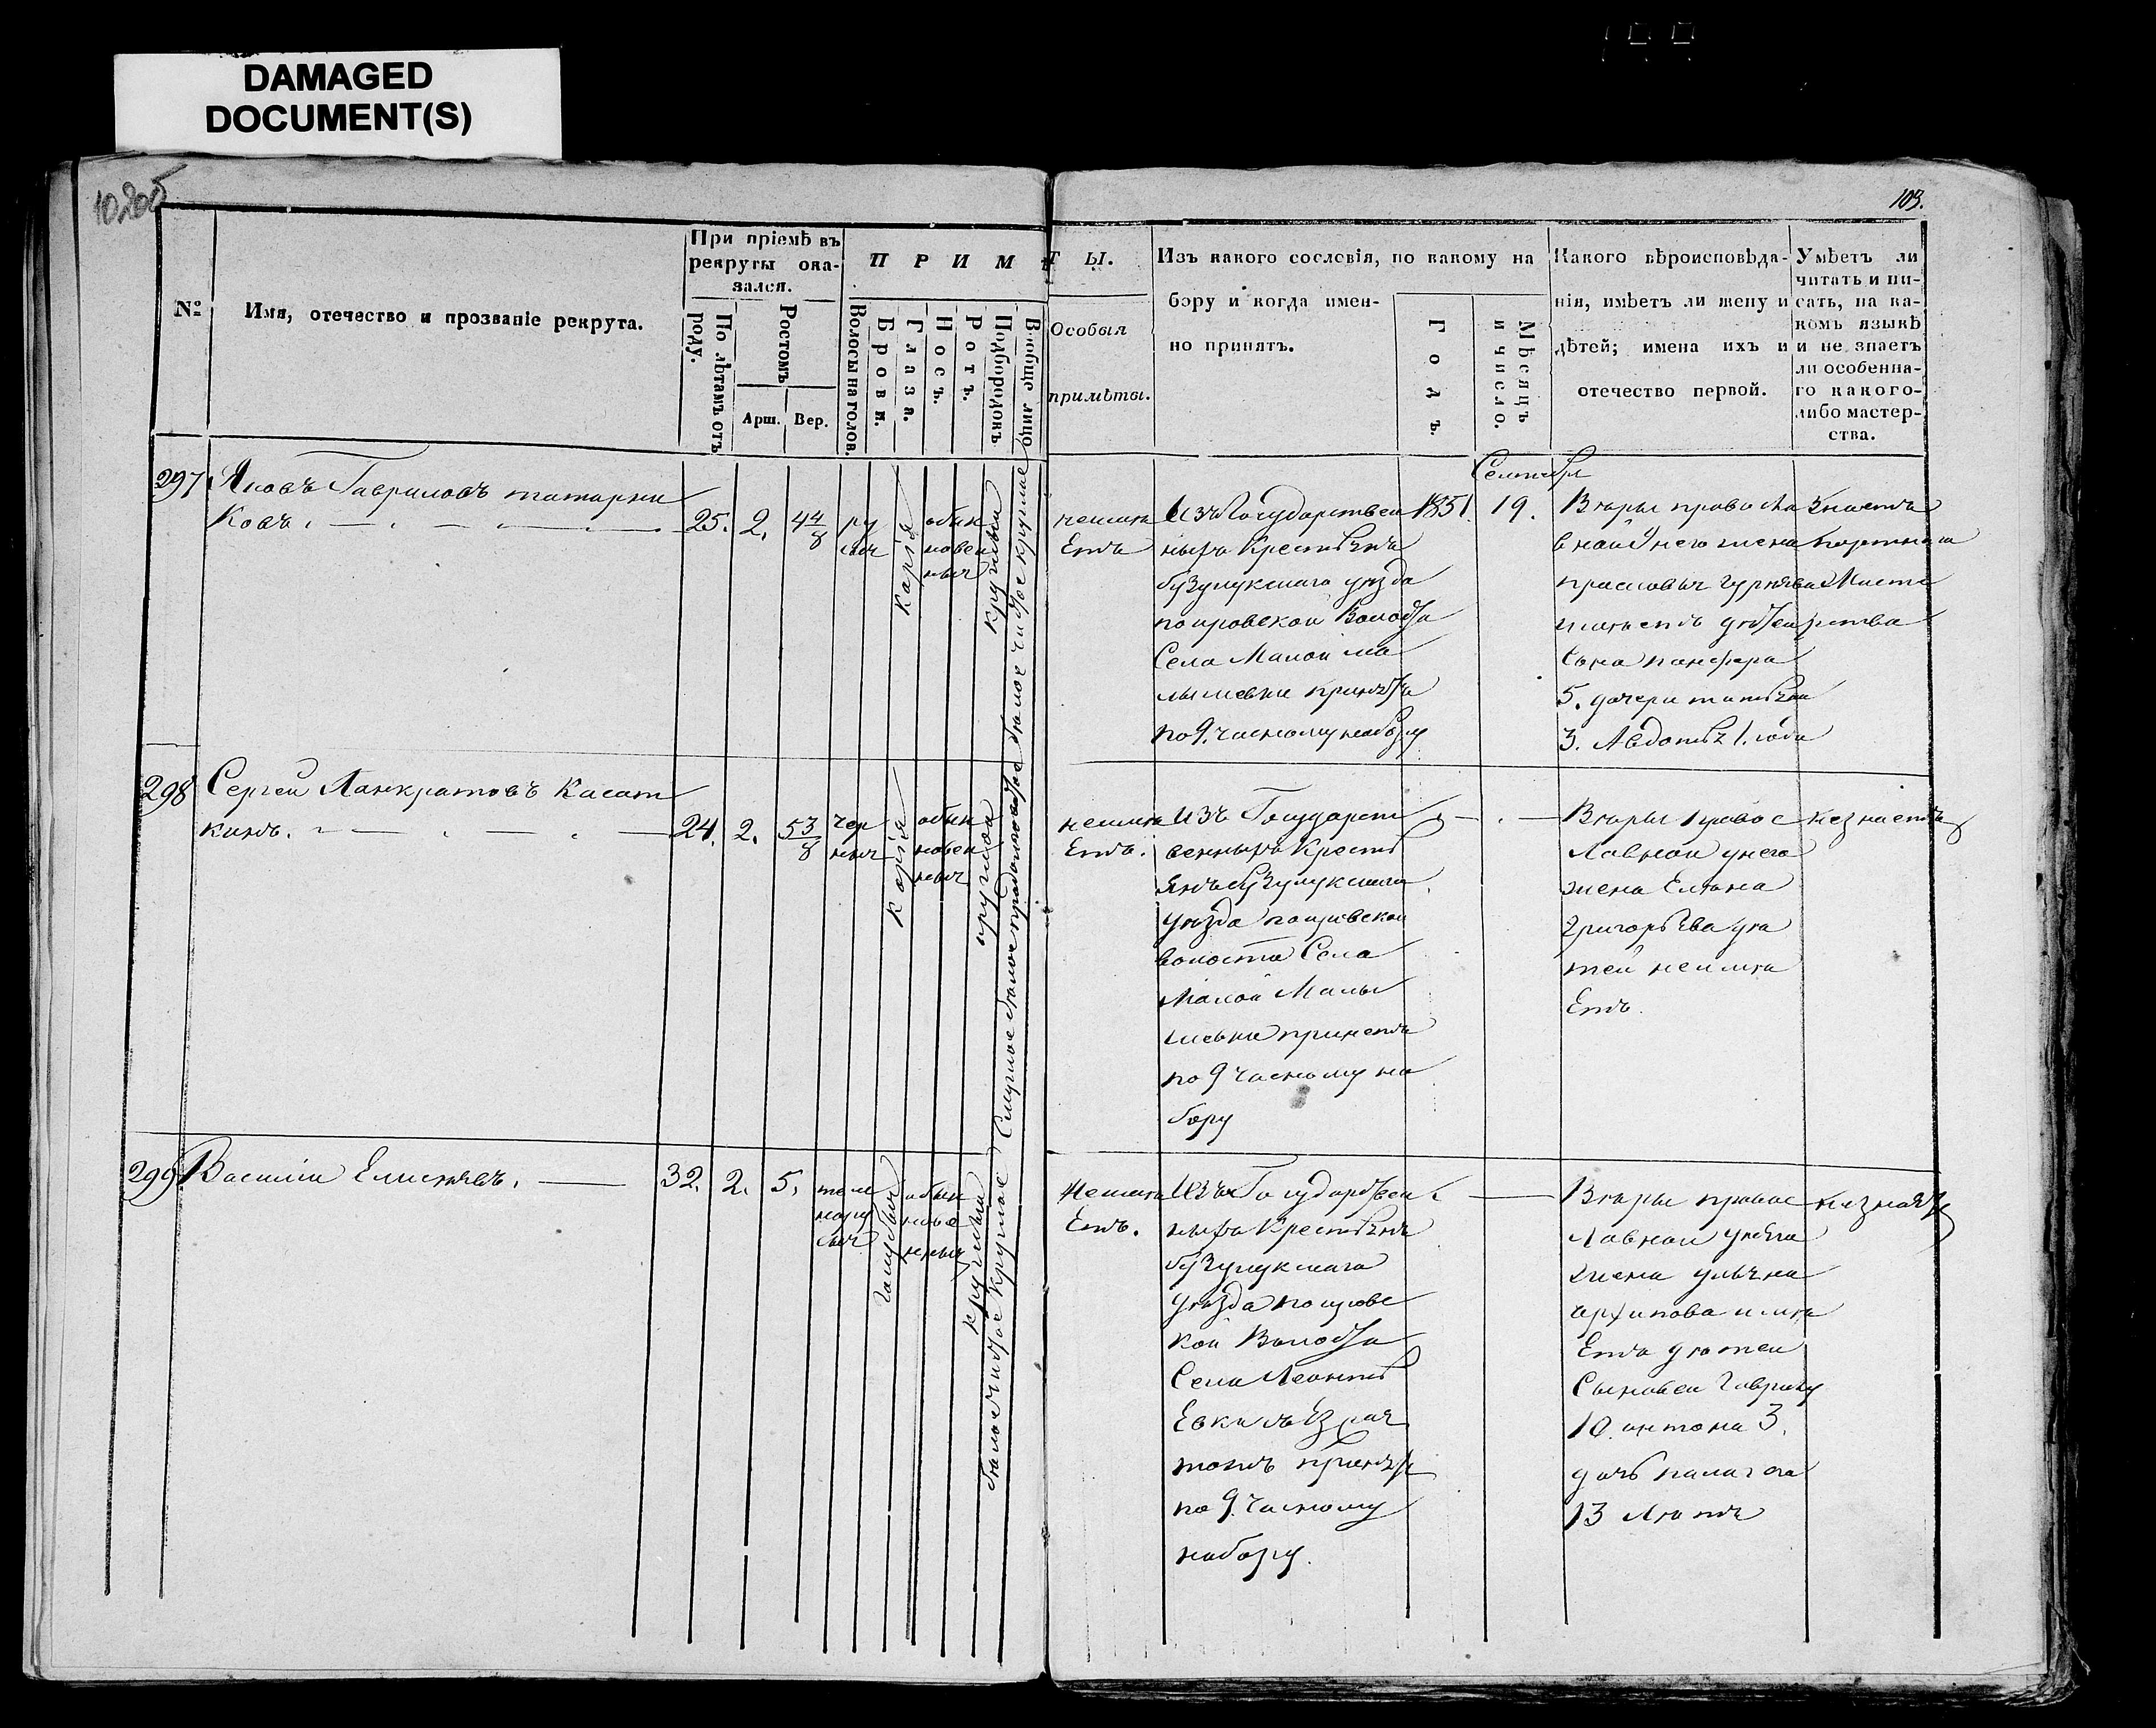 DAMAGED
DOCUMENT(S)
102об
103.
№
Имя, отечество и прозваніе рекрута.
При пріемѣ въ
рекруты ока-
зался.
По лѣтамъ отъ
роду.
Ростомъ
Арш.
Вер.
ПРИМѢТЫ.
Волосы на голов.
Брови.
Глаза.
Носъ.
Ротъ.
Подбородокъ
Вообще лицо
Особыя
примѣты.
Изъ какого сословія, по какому на
бору и когда имен-
но принятъ.
Годъ.
Мѣсяцъ
и число.
Какого вѣроисповѣда-
нія, имѣетъ ли жену и
дѣтей; имена ихъ и
отечество первой.
Умѣетъ ли
читать и пи-
сать, на ка-
комъ языкѣ
и не знаетъ
ли особенна-
го какого-
либо мастер-
ства.
297
Яковъ Гавриловъ татарни
ковъ.
25.
2.
4 4/8
ру
сыя
Карія
обык
новен
ныя
круглый
белое чистое круглое
неиме
Етъ
Изъ Государствен
ныхъ Крестьянъ
бузулукскаго уезда
покровской Волости
Села Малой ма
лышевки принятъ
по 9. часному набору
1851.
Сентября
19.
Веры правосла
вной у него жена
прасковья гурьева
имеетъ детей
сына панфера
5. дочери татьяна
3. Авдотья 1. года
Знаетъ
портное
Масте
рства
298
Сергей Панкратовъ Касат
кинъ.
24.
2.
5 3/8
чер
ныя
Карія
обык
новен
ныя
круглой
Смуглое белое продолговатое
неиме
Етъ.
Изъ Государст
венныхъ Кресть
янъ бузулукскаго
уезда покровской
волости Села
Малой Малы
шевки принетъ
по 9 часному на
бору
Веры правос
лавной у него
жена Елена
григорьева де
тей неиме
Етъ.
незнаетъ
299
Василій Елисеевъ.
32.
2.
5.
тем
нору
сыя
голубыя
обык
нове
нныя
круглый
белое чистое круглое
Неиме
Етъ.
Изъ Государствен
ныхъ Крестьянъ
бузулукскаго
уезда покровс
кой Волости
Села Леонть
Евки
принятъ
по 9. часному
набору.
Веры правос
лавной у него
жена ульяна
архипова име
Етъ детей
Сыновей гаврилу
10. антона 3.
дочь палагея
13 Летъ
незнаетъ